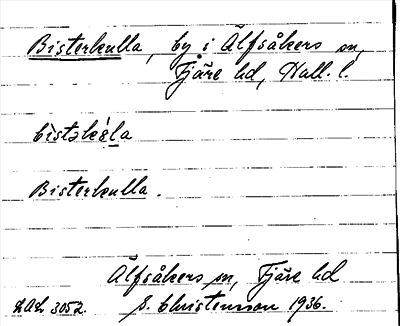 Bisterkulla, by i Älfsåkers sn,
Fjäre hd, Hall. l.
Bisterkulla.
Älfsåkers sn, Fjäre hd
3052. S. Christensson 1936.